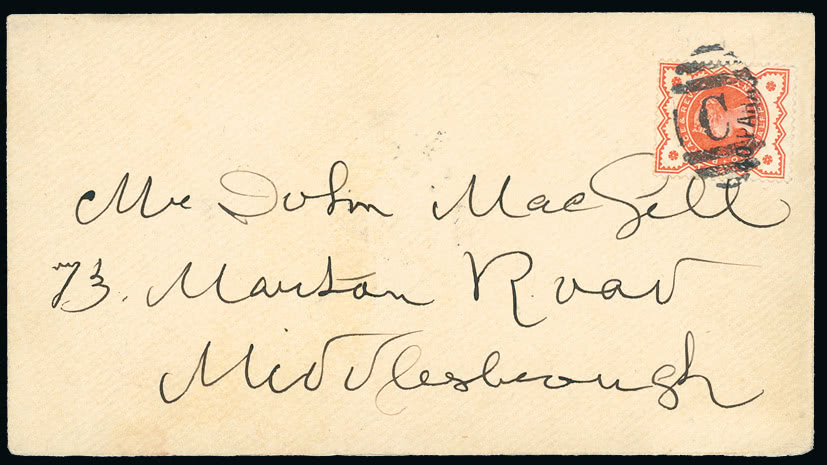 C
40 PARAS
Mr John MacGill
73. Marton Road
Middlesbrough